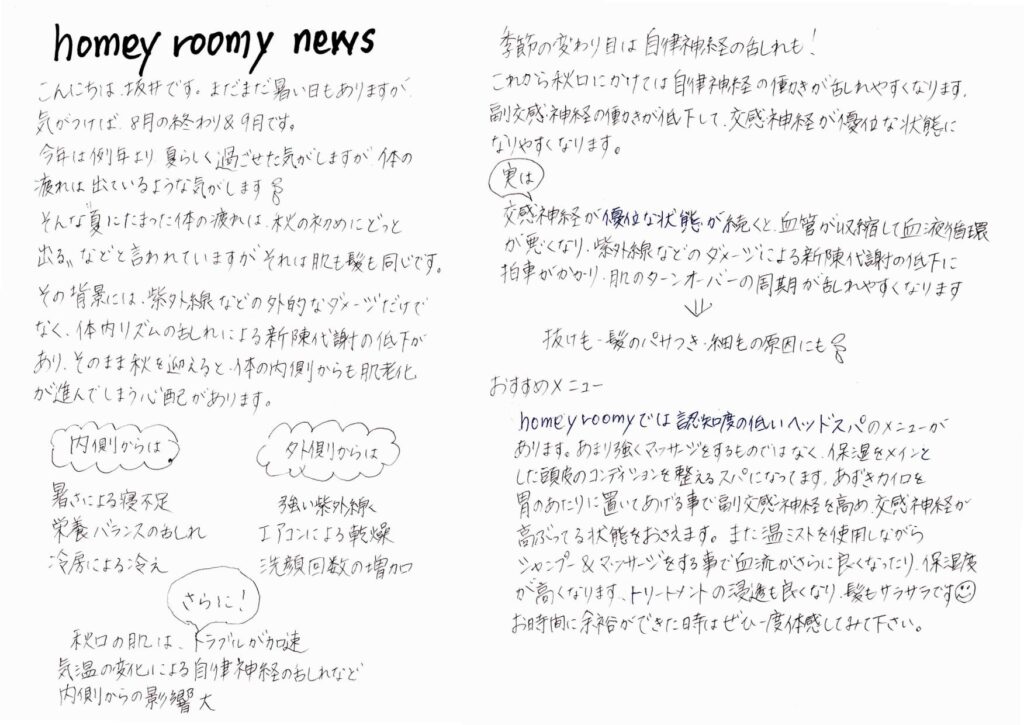 homey roomy news
こんにちは、坂井です。まだまだ暑い日もありますが、
気がつけば、8月の終わり&9月です。
今年は例年より、夏らしく過ごせた気がしますが、体の
疲れは出ているような気がします
そんな〝夏にたまった体の疲れは、秋の初めにどっと
出る〟などと言われていますが、それは肌も髪も同じです。
その背景には、紫外線などの外的なダメージだけで
なく、体内リズムの乱れによる新陳代謝の低下が
あり、そのまま秋を迎えると、体の内側からも肌老化
が進んでしまう心配があります。
内側からは
暑さによる寝不足
栄養バランスの乱れ
冷房による冷え
外側からは
強い紫外線
エアコンによる乾燥
洗顔回数の増加
さらに!
秋口の肌は、トラブルが加速
気温の変化による自律神経の乱れなど
内側からの影響大
季節の変わり目は自律神経の乱れも!
これから秋口にかけては自律神経の働きが乱れやすくなります。
副交感神経の働きが低下して、交感神経が優位な状態に
なりやすくなります。
実は
交感神経が優位な状態が続くと、血管が収縮して血液循環
が悪くなり、紫外線などのダメージによる新陳代謝の低下に
拍車がかかり、肌のターンオーバーの周期が乱れやすくなります
⇓
抜け毛・髪のパサつき・細毛の原因にも
おすすめメニュー
homey roomyでは認知度の低いヘッドスパのメニューが
あります。あまり強くマッサージをするものではなく、保湿をメインと
した頭皮のコンディションを整えるスパになってます。あずきカイロを
胃のあたりに置いてあげる事で副交感神経を高め、交感神経が
高ぶってる状態をおさえます。また温ミストを使用しながら
シャンプー&マッサージをする事で血流がさらに良くなったり、保湿度
が高くなります、トリートメントの浸透も良くなり、髪もサラサラです
お時間に余裕ができた時はぜひ一度体感してみて下さい。